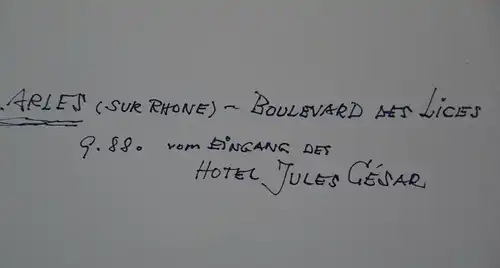 ARLES (SUR RHONE) – BOULEVARD DES LICES
9.88. vom EINGANG DES
HOTEL JULES CÉSAR